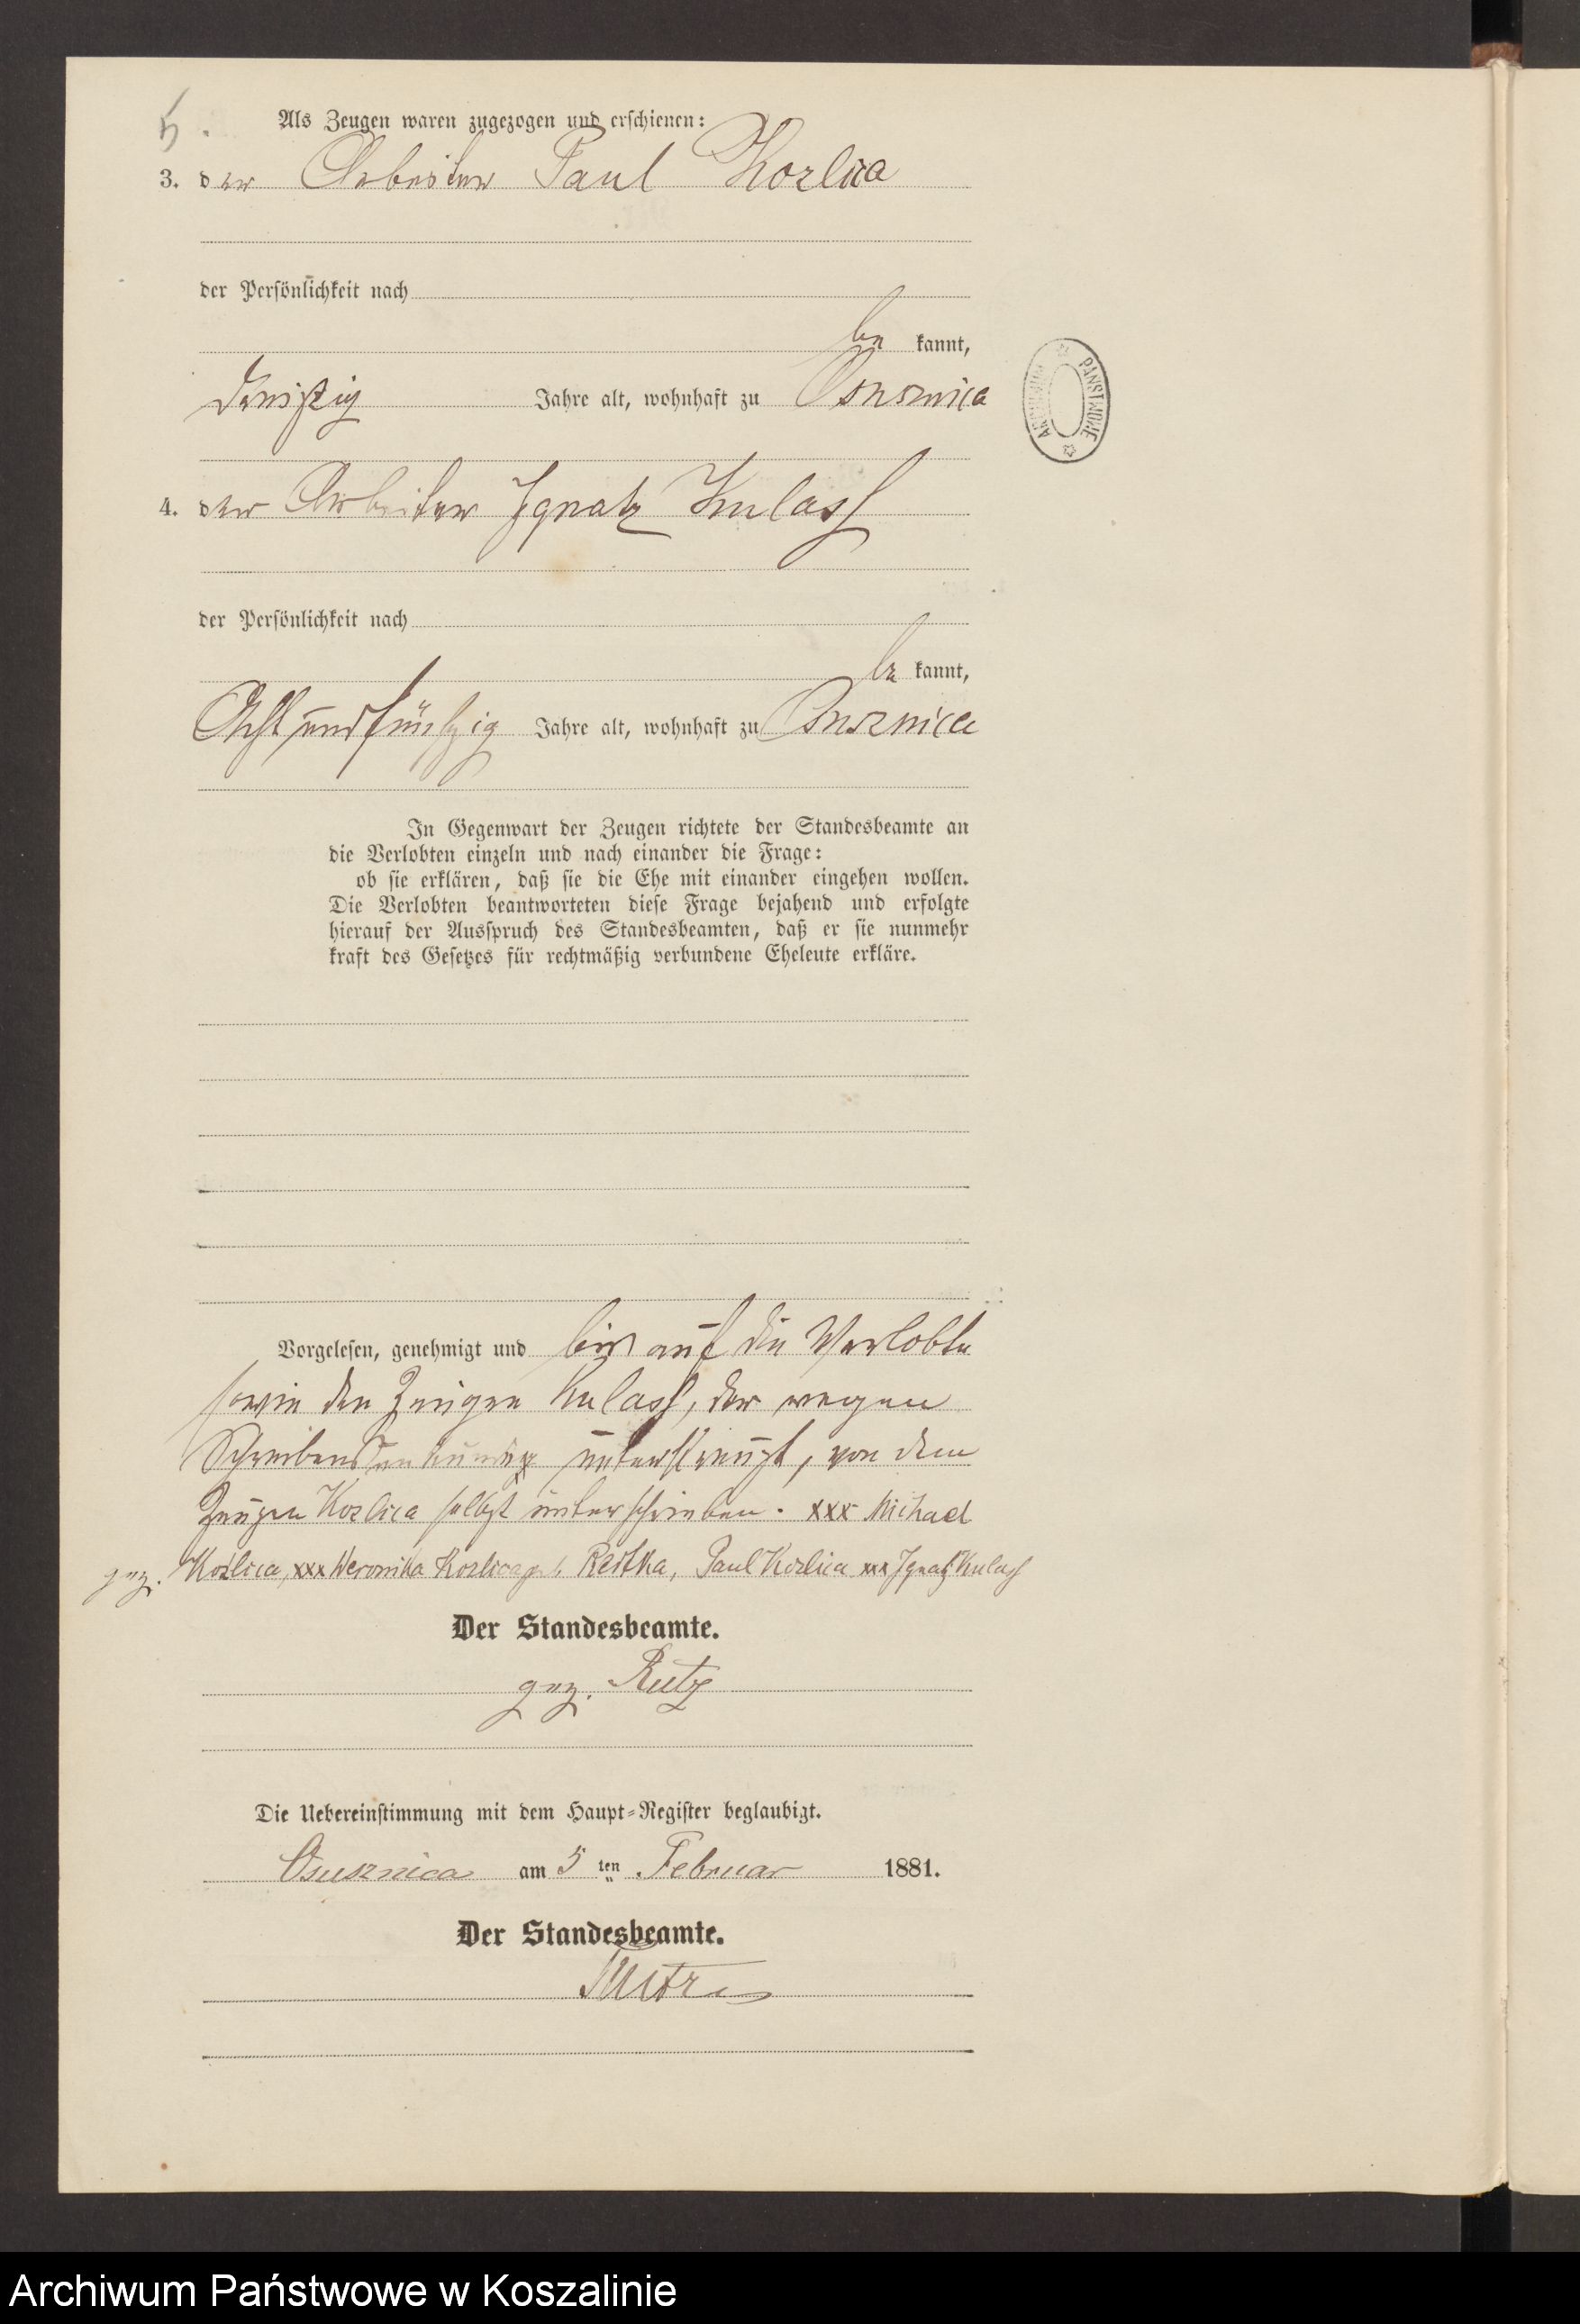 5.
Als Zeugen waren zugezogen und erschienen:
3. der Arbeiter Paul Kozlica
der Persönlichkeit nach
be kannt,
dreißig Jahre alt, wohnhaft zu Ossusznica
4. der Arbeiter Ignatz Kulass
der Persönlichkeit nach
be kannt,
Acht und fünfzig Jahre alt, wohnhaft zu Ossusznica
In Gegenwart der Zeugen richtete der Standesbeamte an
die Verlobten einzeln und nach einander die Frage:
ob sie erklären, daß sie die Ehe mit einander eingehen wollen.
Die Verlobten beantworteten diese Frage bejahend und erfolgte
hierauf der Ausspruch des Standesbeamten, daß er sie nunmehr
kraft des Gesetzes für rechtmäßig verbundene Eheleute erkläre.
Vorgelesen, genehmigt und bis auf die Verlobte
sowie den Zeugen Kulass, der wegen
Schreibens unterkreuzt, von dem
Zeugen Kozlica selbst unterschrieben. xxx Michael
gez. Kozlica, xxx Weronika Kozlica geb. Reitka, Paul Kozlica xxx Ignatz Kulass
Der Standesbeamte.
gez. Rutz
Die Uebereinstimmung mit dem Haupt-Register beglaubigt.
Osusznica am 5 ten Februar 1881.
Der Standesbeamte.
ARCHIWUM PAŃSTWOWE
Archiwum Państwowe w Koszalinie